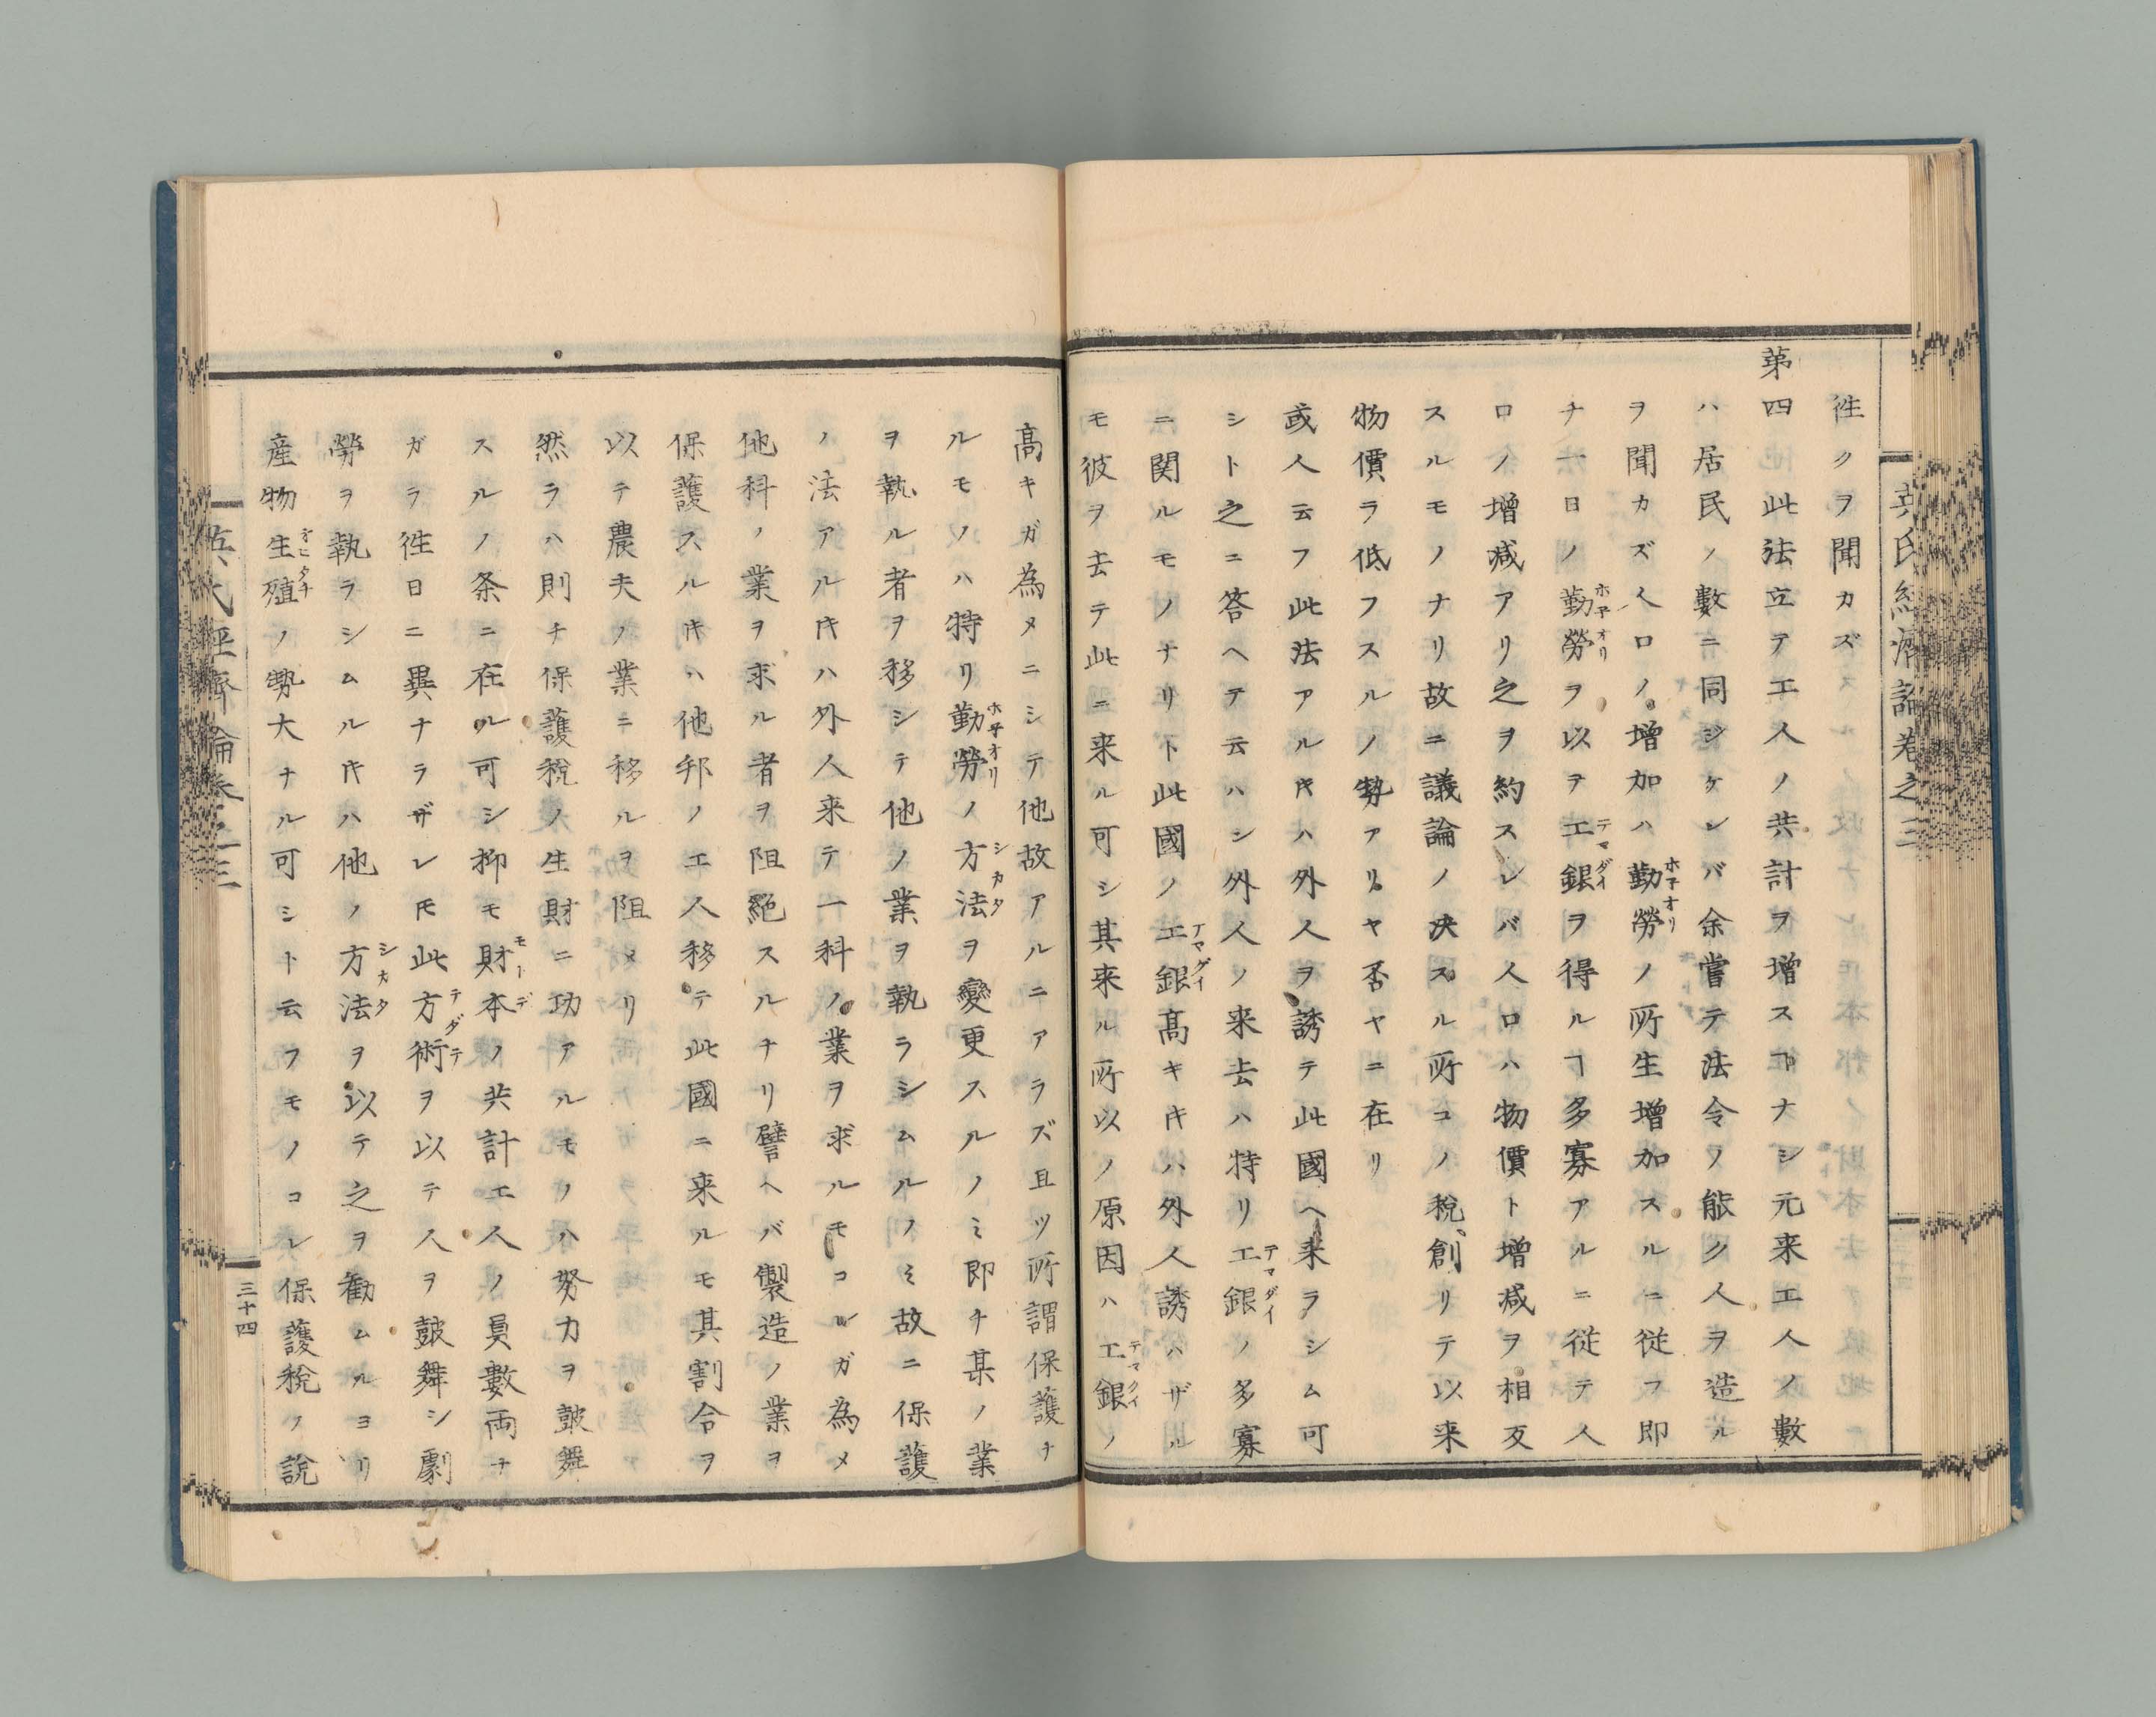 英氏経済論巻之三
徃クヲ聞カズ
第四此法立テ工人ノ共計ヲ増スヿナシ元来工人ノ數
ハ居民ノ數ニ同ジケレバ余嘗テ法令ノ能ク人ヲ造ル
ヲ聞カズ人口ノ増加ハ勤勞ノ所生増加スルニ従フ即
チ一日ノ勤勞ヲ以ヲ工銀ヲ得ルヿ多寡アルニ従テ人
口ノ増减アリ之ヲ約スレバ人口ハ物價ト増减ヲ相反
スルモノナリ故ニ議論ノ决スル所コノ税創リテ以来
物價ラ低フスルノ勢アリヤ否ヤニ在リ
或人云フ此法アルキハ外人ヲ誘テ此國ヘ来ラシム可
シト之ニ答ヘテ云ハシ外人ノ来去ハ特リ工銀ノ多寡
ニ関ルモノナリト此國ノ工銀髙キキハ外人誘ハザル
モ彼ヲ去テ此ニ来ル可シ其来ル所以ノ原因ハ工銀ノ
髙キガ為メニシテ他故アルニアラズ且ツ所謂保護ナ
ルモノハ特リ勤勞ノ方法ヲ變更スルノミ即チ某ノ業
ヲ執ル者ヲ移シテ他ノ業ヲ執ラシムルノミ故ニ保護
ノ法アルキハ外人来テ一科ノ業ヲ求ルモコルガ為メ
他科ノ業ヲ求ル者ヲ阻絶スルナリ譬ヘバ製造ノ業ヲ
保護スルキハ他邦ノ工人移テ此國ニ来ルモ其割合ヲ
以テ農夫ノ業ニ移ルヲ阻メリ
然ラハ則チ保護税ノ生財ニ功アルモノハ努力ヲ皷舞
スルノ条ニ在ル可シ抑モ財本ノ共計工人ノ員數両ナ
ガラ徃日ニ異ナラザレ𪜈此方術ヲ以テ人ヲ皷舞シ劇
勞ヲ執ラシムルキハ他ノ方法ヲ以テ之ヲ勸ムルヨリ
産物生殖ノ勢大ナル可シト云フモノコレ保護税ノ説
英氏経濟論巻之三
三十四